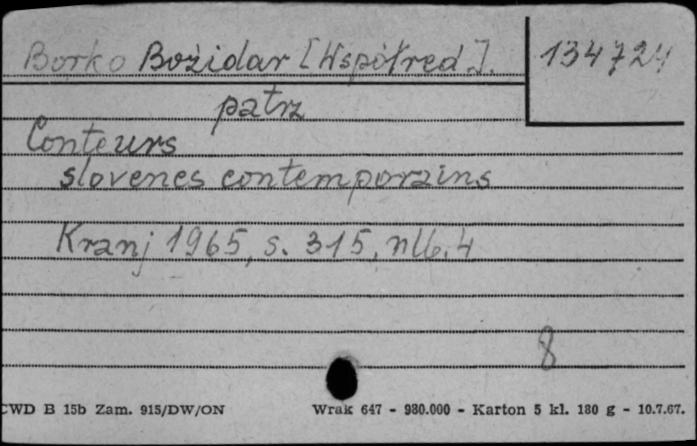 Borko Božidar [Współred.]. 134724
patrz
Conteurs
slovenes contemporains
Kranj 1965, s. 315, nlb. 4
8
CWD B 15b Zam. 915/DW/ON Wrak 647 - 980.000 - Karton 5 kl. 180 g - 10.7.67.